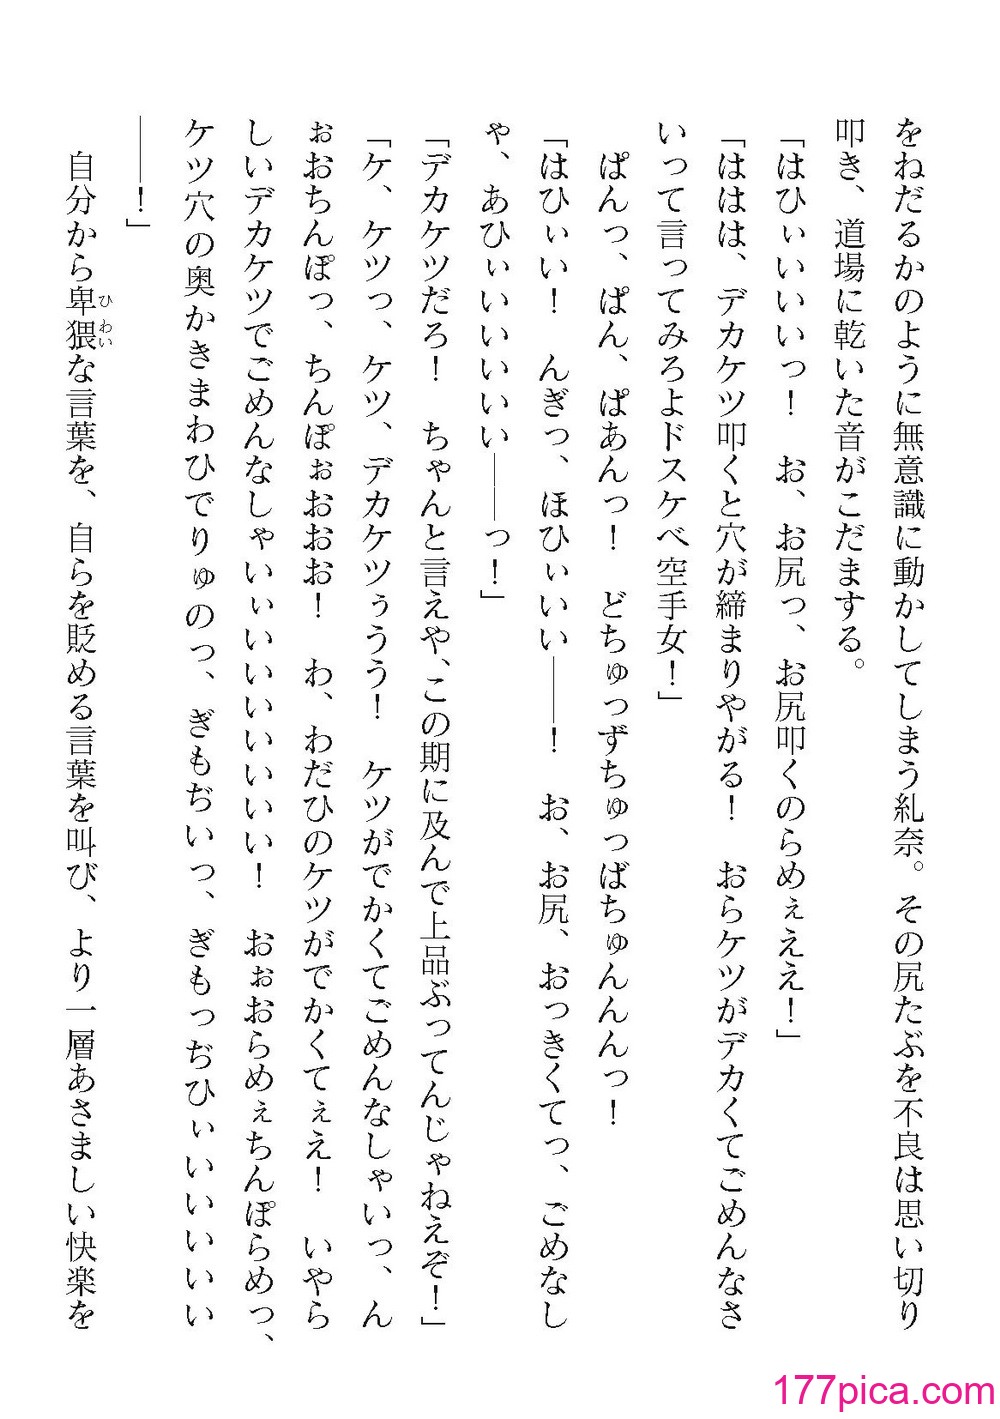 をねだるかのように無意識に動かしてしまう糺奈。その尻たぶを不良は思い切り
叩き、道場に乾いた音がこだまする。
「はひぃいいいっ！　お、お尻っ、お尻叩くのらめぇええ！」
「ははは、デカケツ叩くと穴が締まりやがる！　おらケツがデカくてごめんなさ
いって言ってみろよドスケベ空手女！」
　ぱんっ、ぱん、ぱあんっ！　どちゅっずちゅっばちゅんんんっ！
「はひぃい！　んぎっ、ほひぃいい――！　お、お尻、おっきくてっ、ごめなし
ゃ、あひぃいいいいい――っ！」
「デカケツだろ！　ちゃんと言えや、この期に及んで上品ぶってんじゃねえぞ！」
「ケ、ケツっ、ケツ、デカケツぅうう！　ケツがでかくてごめんなしゃいっ、ん
ぉおちんぽっ、ちんぽぉおおお！　わ、わだひのケツがでかくてぇえ！　いやら
しいデカケツでごめんなしゃいぃいいいいいい！　おぉおらめぇちんぽらめっ、
ケツ穴の奥かきまわひでりゅのっ、ぎもぢいっ、ぎもっぢひぃいいいいい
――！」
　自分から卑猥な言葉を、自らを貶める言葉を叫び、より一層あさましい快楽を
ひわい
177pica.com